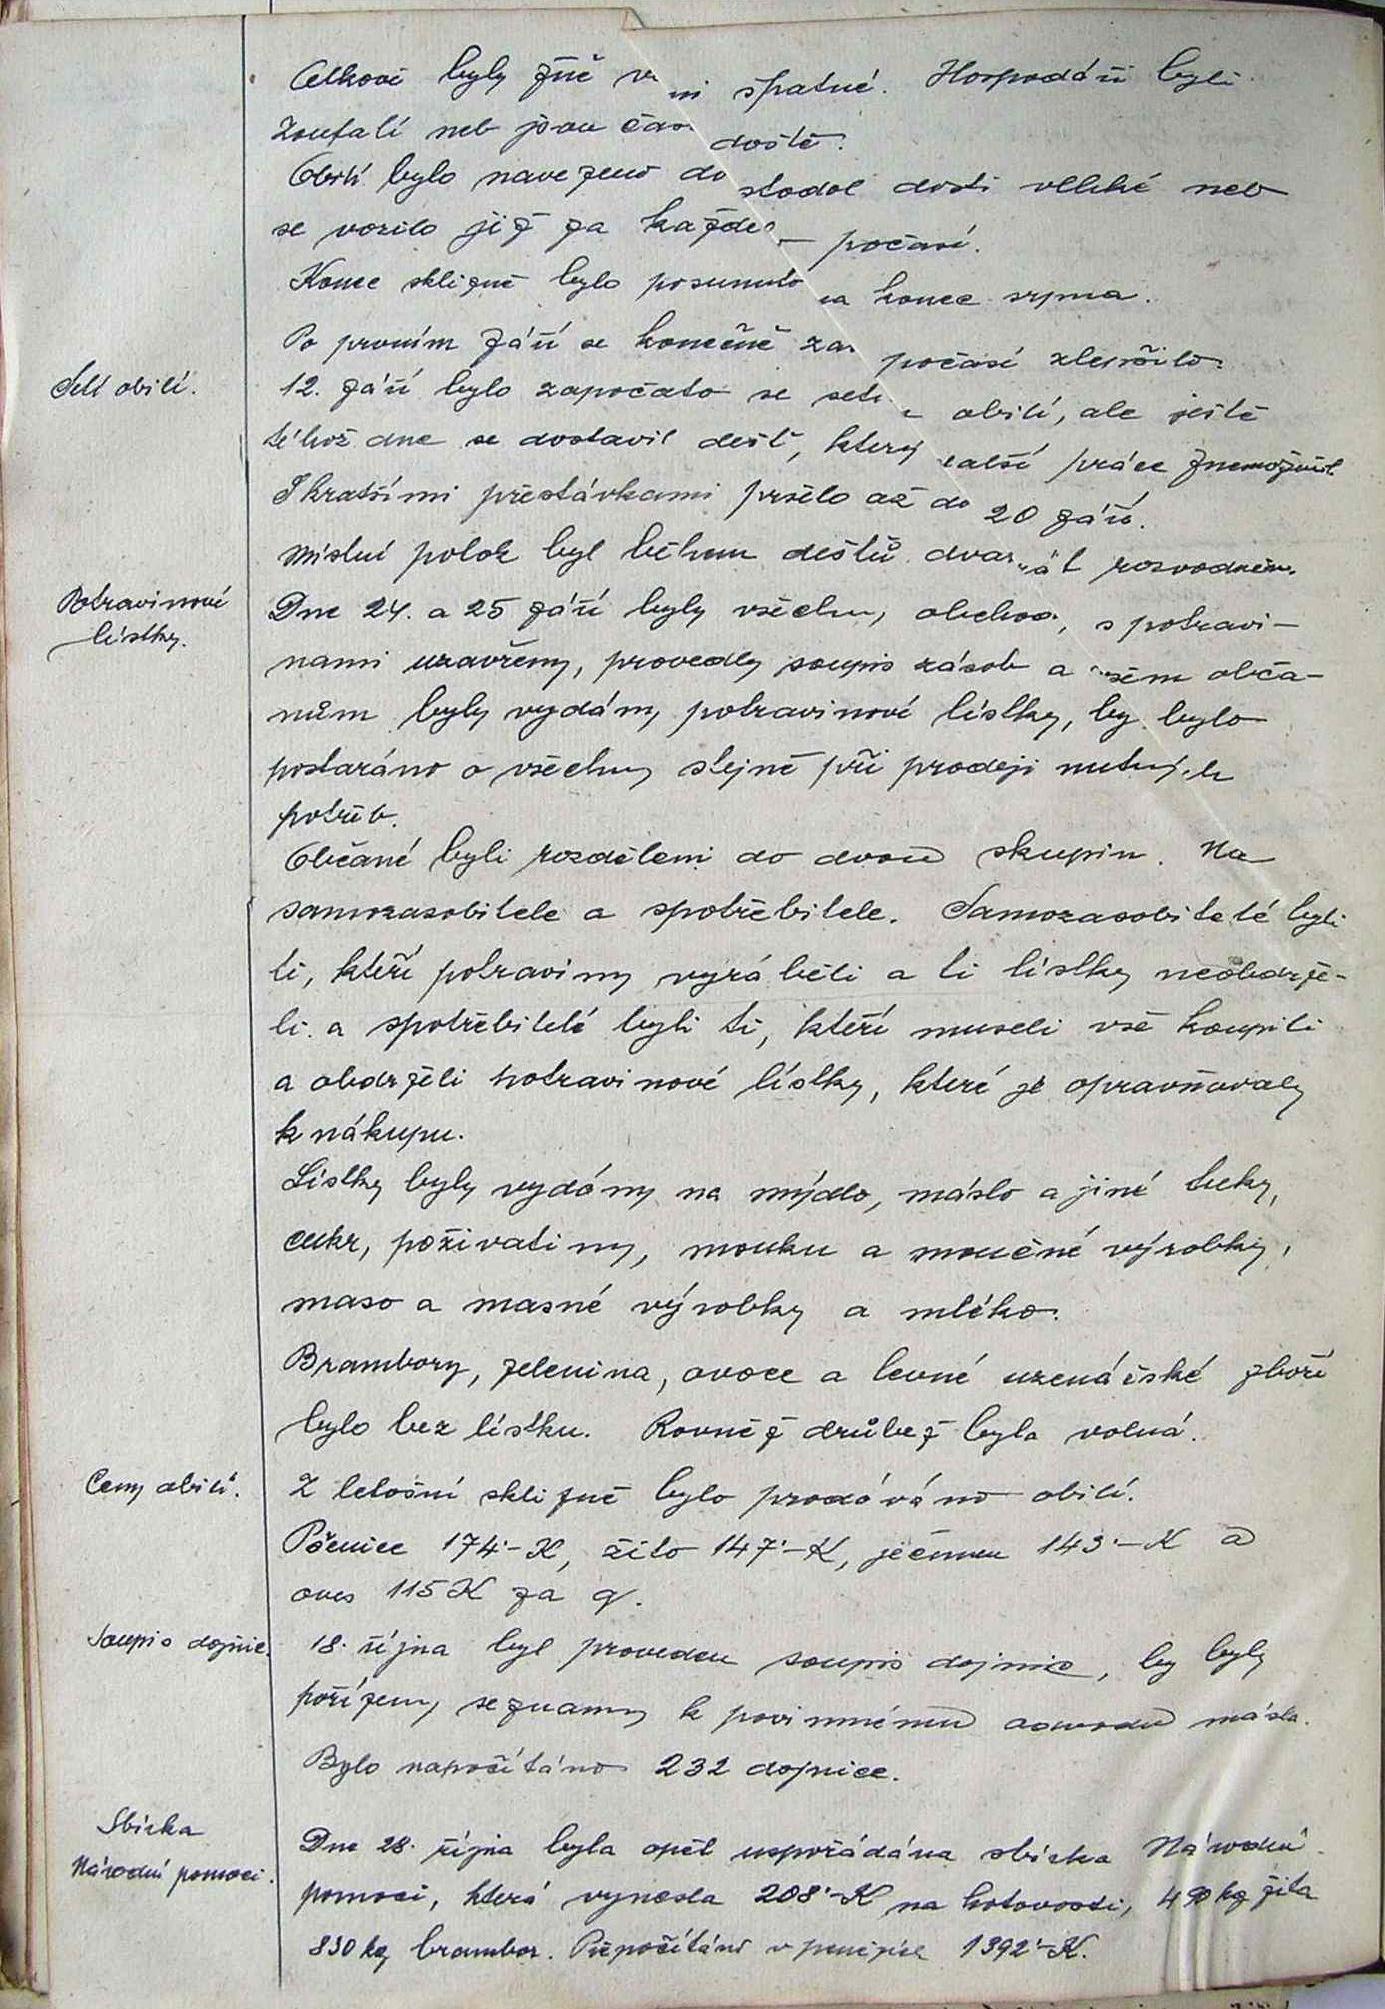 Celkově byly žně velmi špatné. Hospodáři byli
zoufalí neb jsou deště.
Obilí bylo navezeno do stodol dosti vlhké neb
se vozilo již za každého počasí.
Konec sklizně bylo posunuto na konec srpna.
Po prvním září se konečně počasí zlepšilo.
Setí obilí.
12. září bylo započato se setím obilí, ale ještě
téhož dne se dostavil dešť, který další práce znemožnil
S kratšími přestávkami pršelo až do 20 září.
Místní potok byl během dešťů dvakrát rozvodněn.
Potravinové
lístky.
Dne 24. a 25 září byly všechny obchody s potravi-
nami uzavřeny, provedly soupis zásob a všem obča-
nům byly vydány potravinové lístky, by bylo
postaráno o všechny stejně při prodeji nutných
potřeb.
Občané byli rozděleni do dvou skupin. Na
samozasobitele a spotřebitele. Samozasobitelé byli
ti, kteří potraviny vyráběli a ti lístky neobdrže-
li. a spotřebitelé byli ti, kteří museli vše koupiti
a obdrželi potravinové lístky, které je opravňovaly
k nákupu.
Lístky byly vydány na mýdlo, máslo a jiné tuky,
cukr, poživatiny, mouku a moučné výrobky,
maso a masné výrobky a mléko.
Brambory, zelenina, ovoce a levné uzenářské zboží
bylo bez lístku. Rovněž drůbež byla volná.
Ceny obilí.
Z letošní sklizně bylo prodáváno obilí.
Pšenice 174·-K, žito 147·-K, ječmen 143·-K a
oves 115K za q.
Soupis dojnic.
18. října byl proveden soupis dojnic, by byly
pořízeny seznamy k povinnému odvodu másla.
Bylo napočítáno 232 dojnice.
Sbírka
Národní pomoci.
Dne 28. října byla opět uspořádána sbírka Národní
pomoci, která vynesla 208·-K na hotovosti, 490 kg žita
830 kg brambor. Přepočítáno v penězích 1392·-K.